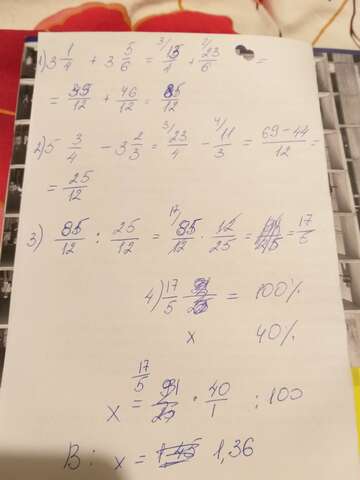 1) 3 1/4 + 3 5/6 = 3/ 13/4 + 2/ 23/6 =
= 39/12 + 46/12 = 85/12
2) 5 3/4 - 3 2/3 = 3/ 23/4 - 4/ 11/3 = 69-44/12 =
= 25/12
3) 85/12 : 25/12 = 17 85/12 · 12/25 = = 17/5
4) 17/5 = 100%
x 40%
17/5
x = · 40/1 : 100
B: x = 1,36